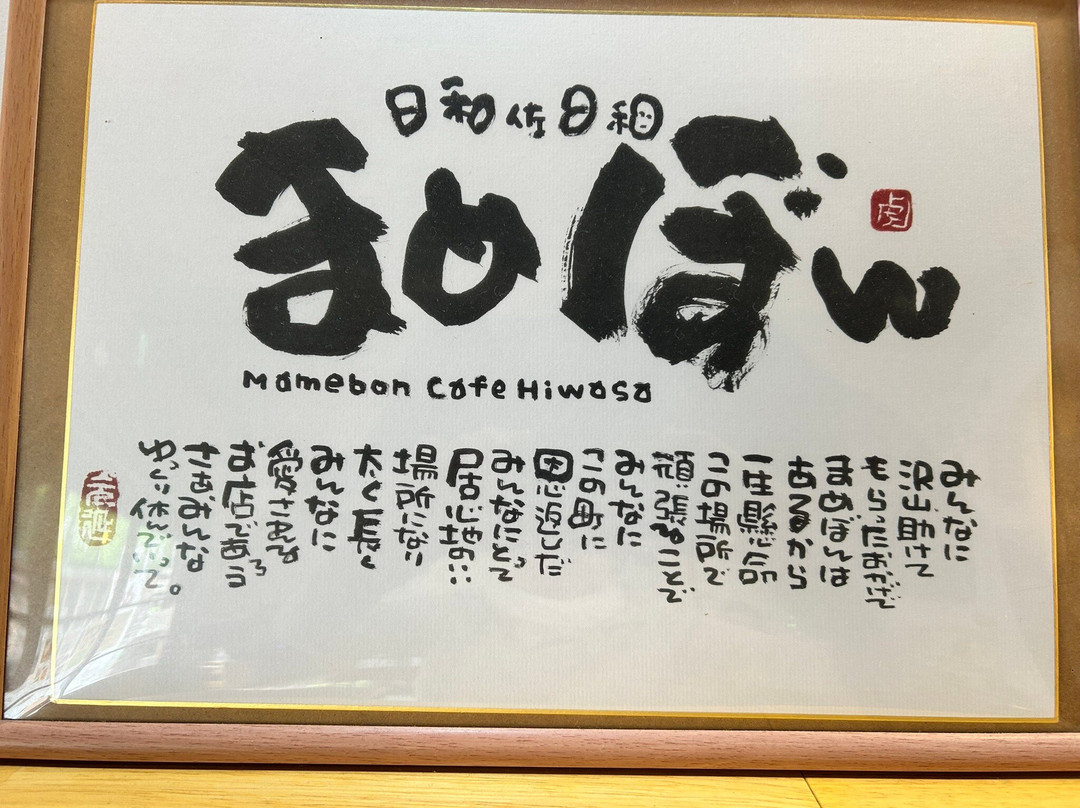 日和佐日和
まめぼん
Mamebon Cafe Hiwasa
みんなに
沢山助けて
もらったおかげで
まめぼんは
あるから
一生懸命
この場所で
頑張ることで
みんなに
この町に
恩返しだ
みんなにとって
居心地のいい
場所になり
太く長く
みんなに
愛される
お店であろう
さあみんな
ゆっくり休んでいって。
虎